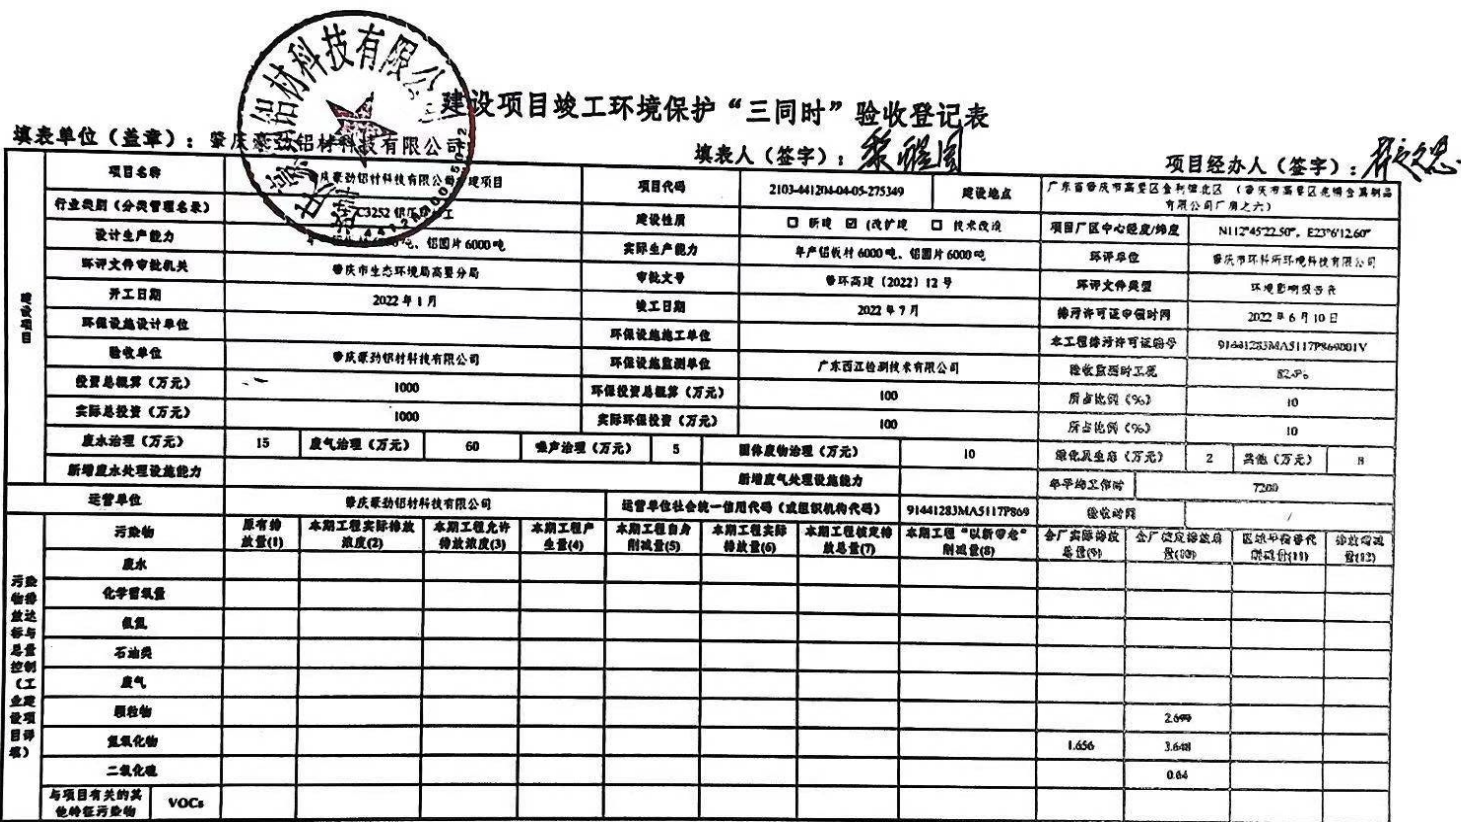 建设项目竣工环境保护“三同时”验收登记表
填表单位（盖章）：肇庆豪劲铝材科技有限公司 填表人（签字）： 项目经办人（签字）：
建设项目
项目名称 肇庆豪劲铝材科技有限公司 建项目 项目代码 2103-441204-04-05-275349 建设地点 广东省肇庆市高要区金利镇北区 （肇庆市高要区 金属制品
有限公司厂房之六）
行业类别（分类管理名录） C3252 铝压延加工 建设性质 □ 新建 ☑ (改扩建 □ 技术改造 项目厂区中心经度/纬度 N112°45'22.50", E23°6'12.60"
设计生产能力 6000吨、铝圆片 6000 吨 实际生产能力 年产铝板材 6000 吨、铝圆片 6000 吨 环评单位 肇庆市环科所环境科技有限公司
环评文件审批机关 肇庆市生态环境局高要分局 审批文号 肇环高建〔2022〕12 号 环评文件类型 环境影响报告表
开工日期 2022 年 1 月 竣工日期 2022 年 7 月 排污许可证申领时间 2022 年 6 月 10 日
环保设施设计单位 环保设施施工单位 本工程排污许可证编号 91441283MA5117P869001V
验收单位 肇庆豪劲铝材科技有限公司 环保设施监测单位 广东西江检测技术有限公司 验收监测时工况
投资总概算（万元） 1000 环保投资总概算（万元） 100 所占比例（%） 10
实际总投资（万元） 1000 实际环保投资（万元） 100 所占比例（%） 10
废水治理（万元） 15 废气治理（万元） 60 噪声治理（万元） 5 固体废物治理（万元） 10 绿化及生态（万元） 2 其他（万元） 8
新增废水处理设施能力 新增废气处理设施能力 年平均工作时 7200
运营单位 肇庆豪劲铝材科技有限公司 运营单位社会统一信用代码（或组织机构代码） 91441283MA5117P869 验收时间 /
污染物排放达标与总量控制（工业建设项目详填）
污染物 原有排放量(1) 本期工程实际排放浓度(2) 本期工程允许排放浓度(3) 本期工程产生量(4) 本期工程自身削减量(5) 本期工程实际排放量(6) 本期工程核定排放总量(7) 本期工程“以新带老”削减量(8) 全厂实际排放总量(9) 全厂核定排放总量(10) 区域平衡替代削减量(11) 排放增减量(12)
废水
化学需氧量
氨氮
石油类
废气
颗粒物 2.699
氮氧化物 1.656 3.648
二氧化硫 0.64
与项目有关的其他特征污染物 VOCs